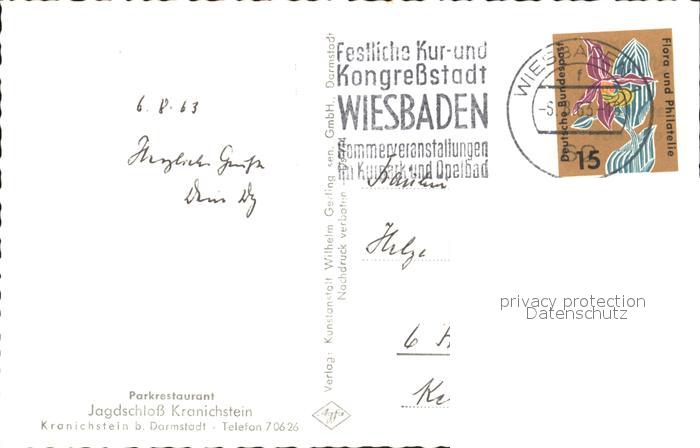 6.8.63
Herzliche Grüße
Dein
Parkrestaurant
Jagdschloß Kranichstein
Kranichstein b. Darmstadt - Telefon 70626
Verlag: Kunstanstalt Wilhelm Gerling sen. GmbH., Darmstadt
Nachdruck verboten
Festliche Kur-und
Kongreßstadt
WIESBADEN
Sommerveranstaltungen
im Kurpark und Opelbad
WIESBADEN
f
Deutsche Bundespost
Flora und Philatelie
15
Helga
6
privacy protection
Datenschutz